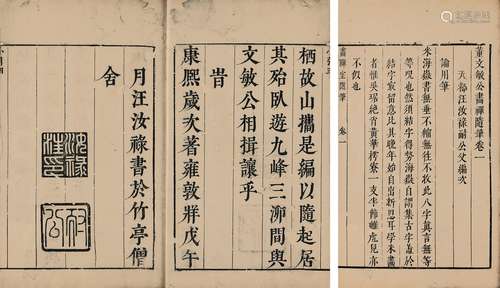 董文敏公畫禪隨筆卷一
天都汪汝祿耐公父編次
論用筆
米海嶽書無垂不縮無往不收此八字真言無等
等呪也然須結字得勢海嶽自謂集古字蓋於
結字最留意比其晚年始自出新意耳學米書
者惟吳琚絕肖黃華樗寮一支半節雖虎兒亦
不似也
畫禪室隨筆 卷一
栖故山攜是編以隨起居
其殆臥遊九峰三泖間與
文敏公相揖讓乎
旹
康熙歲次著雍敦牂戊午
月汪汝祿書於竹亭僧
舍
耐公